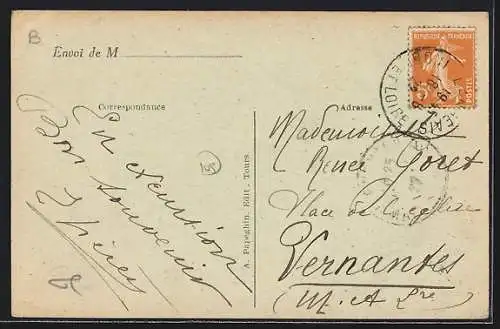 B
Envoi de M
REPUBLIQUE FRANÇAISE
POSTES
ET LOIRE
Correspondance
Adresse
En excursion
Bon Souvenir
Mademoiselle
Renée Goret
Place de l'église
Vernantes
M. & Lre
A. Papeghin. Edit. Tours.